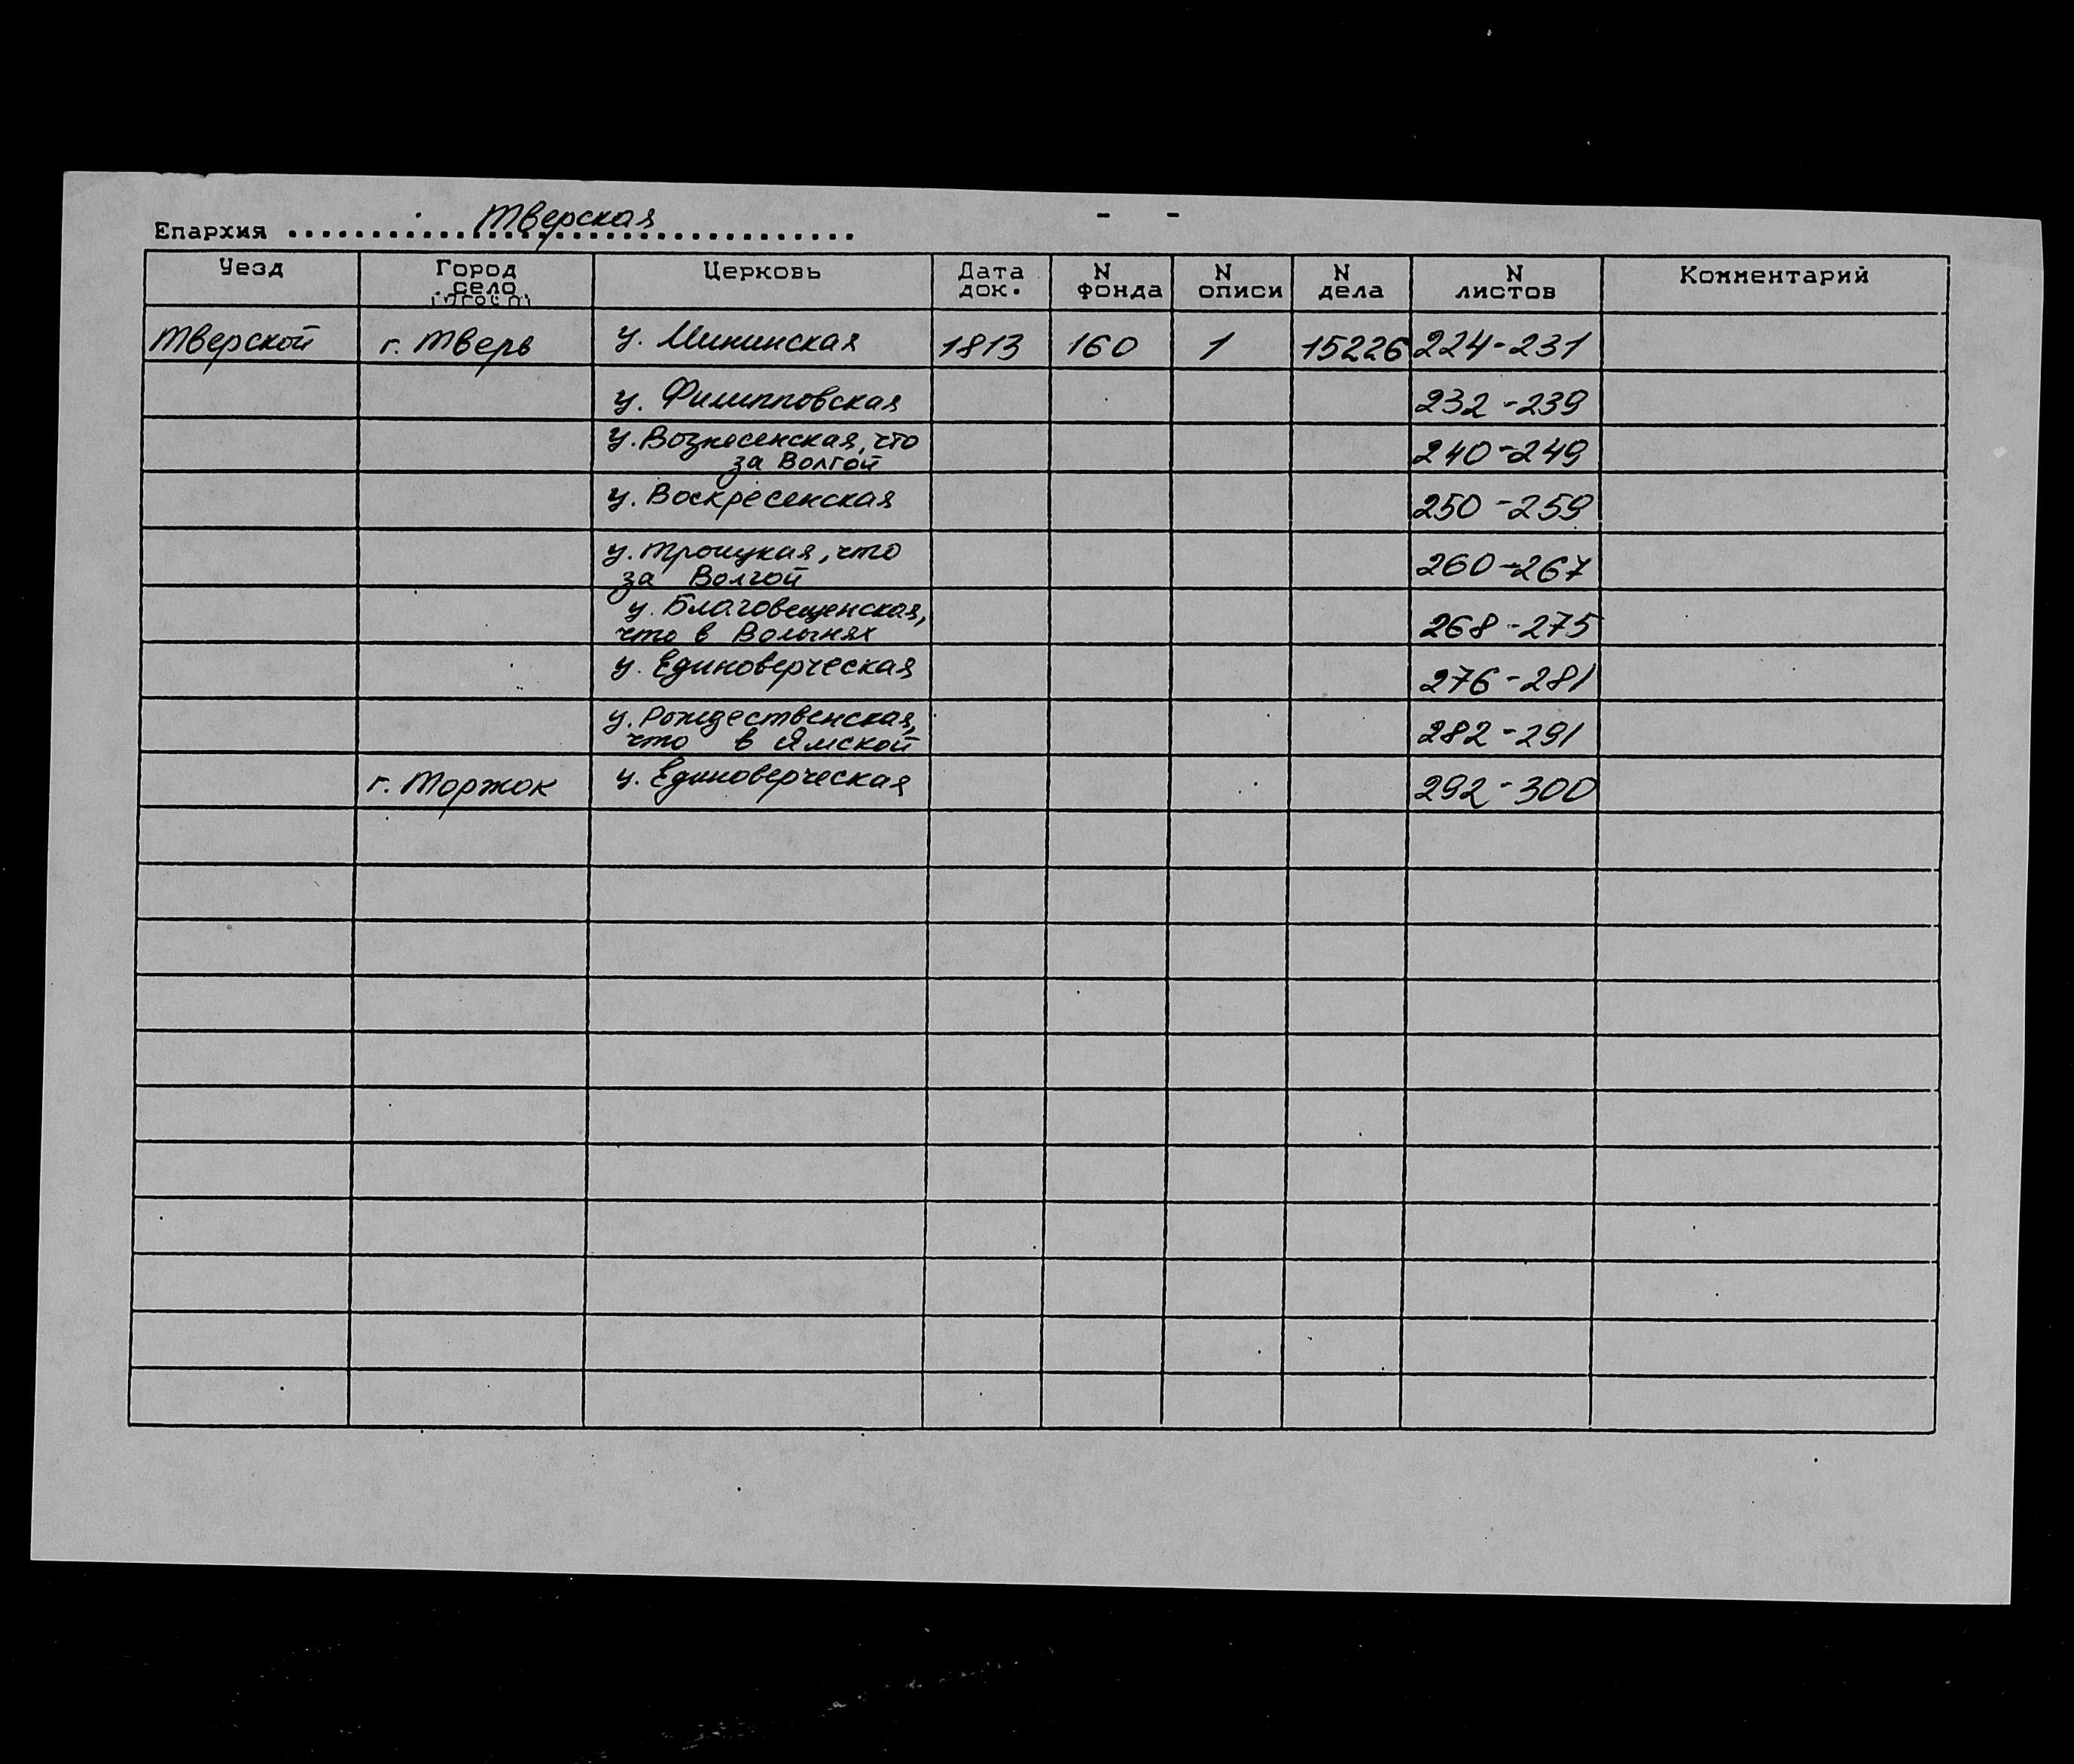 Епархия .......... Тверская ..........
Уезд | Город село погост | Церковь | Дата док. | N фонда | N описи | N дела | N листов | Комментарий
Тверской | г. Тверь | ц. Мининская | 1813 | 160 | 1 | 15226 | 224-231
ц. Филипповская | 232-239
ц. Вознесенская, что
за Волгой | 240-249
ц. Воскресенская | 250-259
ц. Троицкая, что
за Волгой | 260-267
ц. Благовещенская,
что в Волынях | 268-275
ц. Единоверческая | 276-281
ц. Рождественская,
что в Ямской | 282-291
г. Торжок | ц. Единоверческая | 292-300